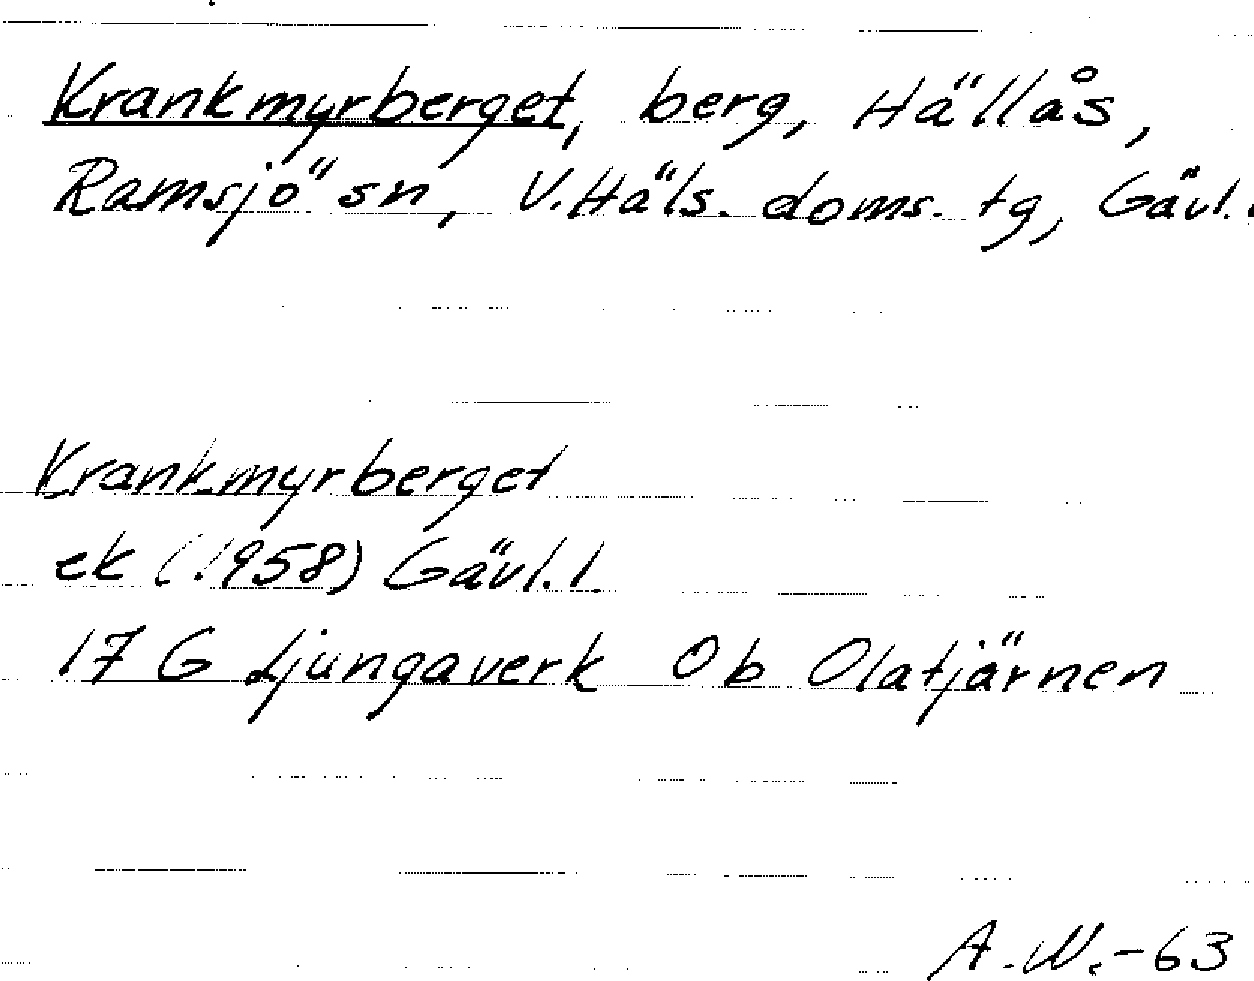 Krankmyrberget, berg, Hällås,
Ramsjö sn, V. Häls. doms. tg, Gävl.
Krankmyrberget
ek (1958) Gävl. l.
17 G Ljungaverk Ob Olatjärnen
A.W.-63